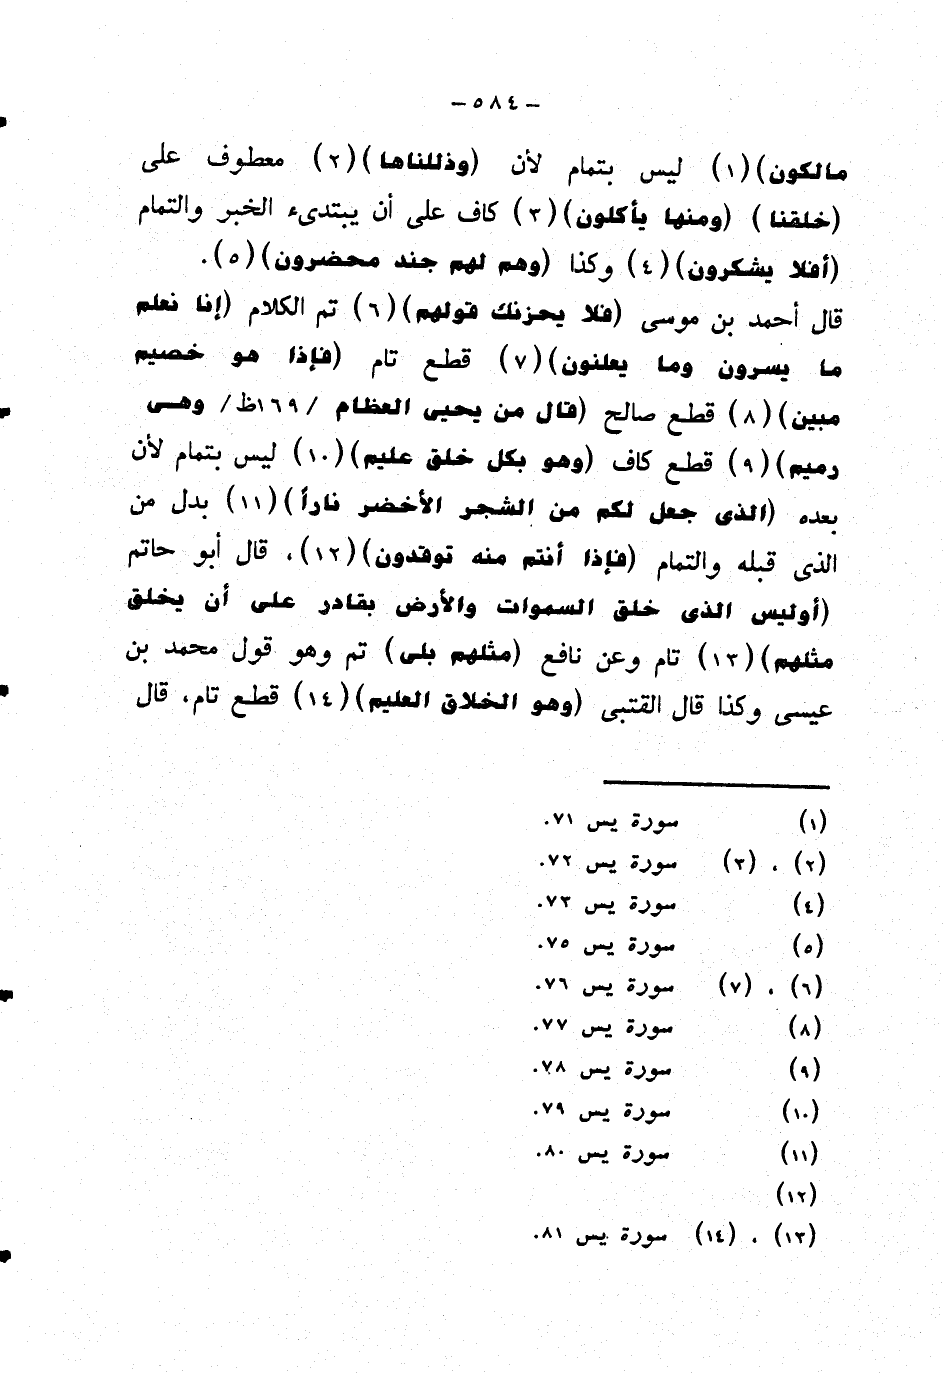 – ٥٨٤ –
مالكون)(١) ليس بتمام لأن (وذللناها)(٢) معطوف على
(خلقنا) (ومنها يأكلون)(٣) كاف على أن يبتدىء الخبر والتمام
(أفلا يشكرون)(٤) وكذا (وهم لهم جند محضرون)(٥).
قال أحمد بن موسى (فلا يحزنك قولهم)(٦) تم الكلام (إنا نعلم
ما يسرون وما يعلنون)(٧) قطع تام (فإذا هو خصيم
مبين)(٨) قطع صالح (قال من يحيى العظام /١٦٩ظ/ وهى
رميم)(٩) قطع كاف (وهو بكل خلق عليم)(١٠) ليس بتمام لأن
بعده (الذى جعل لكم من الشجر الأخضر ناراً)(١١) بدل من
الذى قبله والتمام (فإذا أنتم منه توقدون)(١٢)، قال أبو حاتم
(أوليس الذى خلق السموات والأرض بقادر على أن يخلق
مثلهم)(١٣) تام وعن نافع (مثلهم بلى) تم وهو قول محمد بن
عيسى وكذا قال القتبى (وهو الخلاق العليم)(١٤) قطع تام، قال
(١) سورة يس ٧١.
(٢) ، (٣) سورة يس ٧٢.
(٤) سورة يس ٧٣.
(٥) سورة يس ٧٥.
(٦) ، (٧) سورة يس ٧٦.
(٨) سورة يس ٧٧.
(٩) سورة يس ٧٨.
(١٠) سورة يس ٧٩.
(١١) سورة يس ٨٠.
(١٢)
(١٣) ، (١٤) سورة يس ٨١.